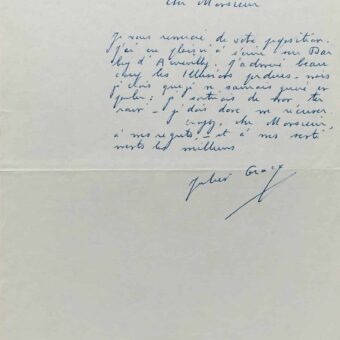 cher Monsieur
Je vous remercie de votre proposition.
J'ai eu plaisir à écrire sur Bar
bey d'Aurevilly. J'admire beau
coup les Illusions perdues - mais
je crois que je ne saurais guère en
parler : je sortirais de mon ter
rain - je dois donc me récuser.
croyez, cher Monsieur,
à mes regrets - et à mes senti
ments les meilleurs
Julien Gracq